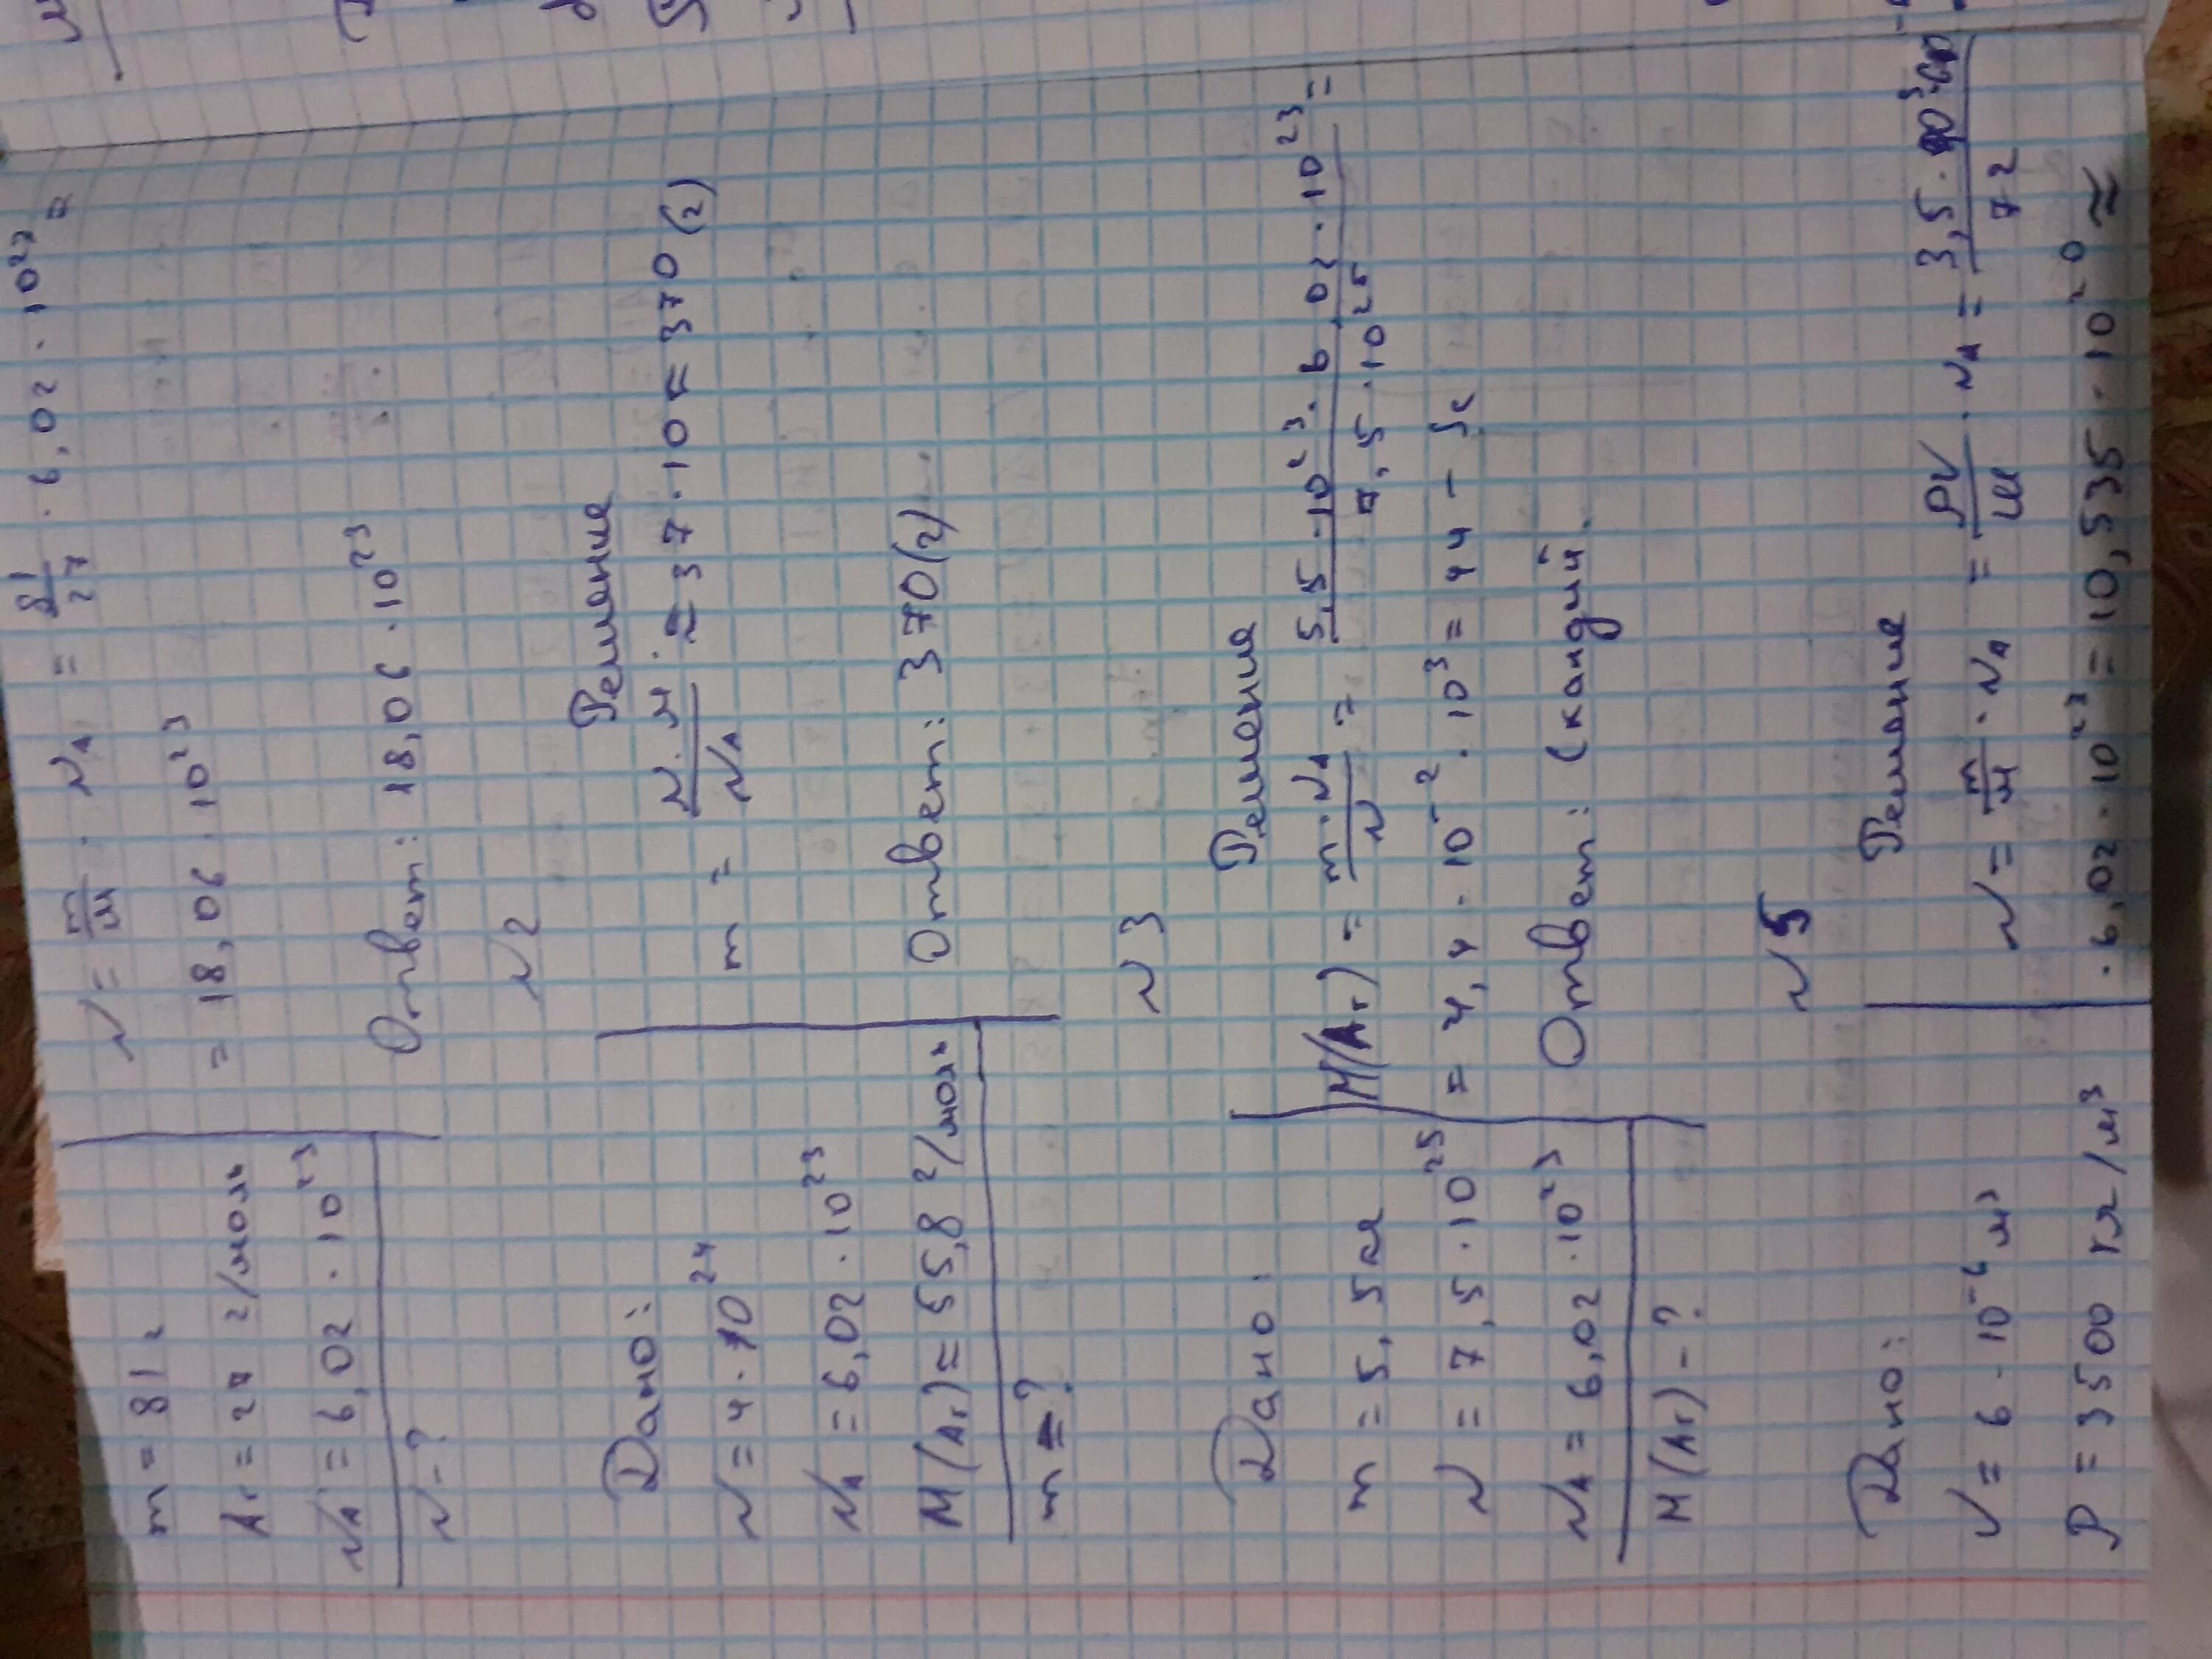 m = 81 г
Ar = 27 г/моль
N_A = 6,02 · 10^23
N - ?
N = m/M · N_A = 81/27 · 6,02 · 10^23 =
= 18,06 · 10^23
Ответ: 18,06 · 10^23
N 2
Дано:
N = 4 · 10^24
N_A = 6,02 · 10^23
M(Ar) = 55,8 г/моль
m = ?
Решение
m = N · M / N_A ≈ 37 · 10 = 370 (г)
Ответ: 370 (г)
N 3
Дано:
m = 5,5 кг
N = 7,5 · 10^25
N_A = 6,02 · 10^23
M(Ar) - ?
Решение
M(Ar) = m · N_A / N = 5,5 · 10^23 · 6,02 · 10^23 / 7,5 · 10^25 =
= 4,4 · 10^-2 · 10^3 = 44 - Sc
Ответ: Скандий.
N 5
Дано:
V = 6 · 10^-6 м³
P = 3500 кг/м³
Решение
N = m/M · N_A = PV/M · N_A = 3,5 ·
72
· 6,02 · 10^23 = 10,535 · 10^20 ≈